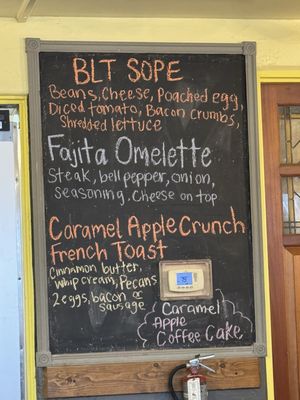 BLT SOPE
Beans, Cheese, Poached egg,
Diced tomato, Bacon crumbs,
Shredded lettuce
Fajita Omelette
Steak, bell pepper, onion,
seasoning. Cheese on top
Caramel Apple Crunch
French Toast
Cinnamon butter,
whip cream, Pecans
2 eggs, bacon or
sausage
Caramel
Apple
Coffee Cake